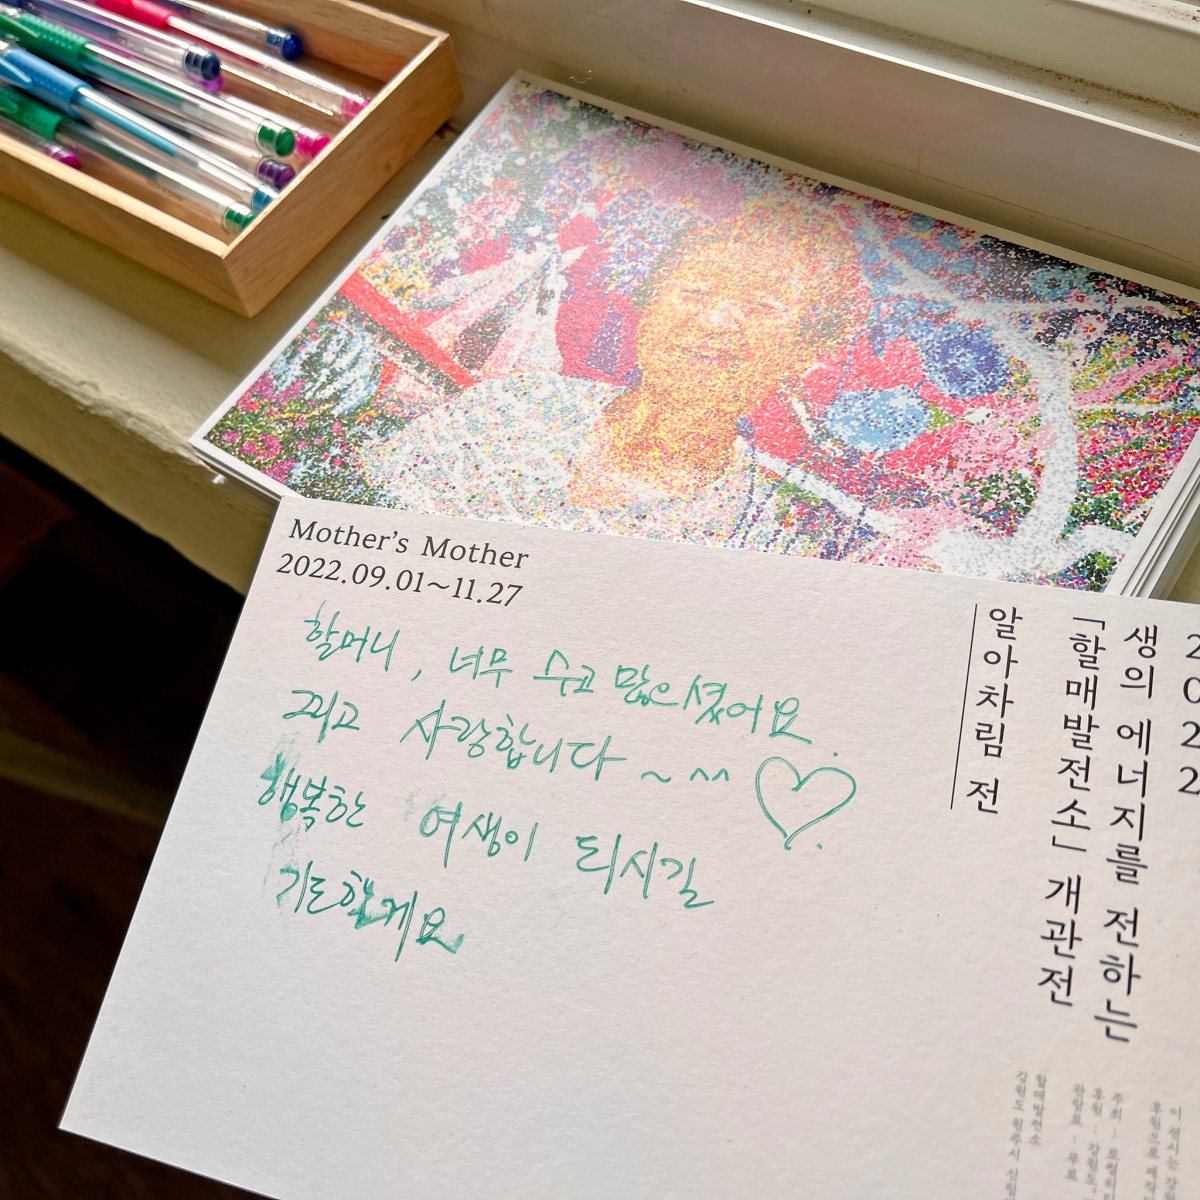 Mother's Mother
2022.09.01~11.27
할머니, 너무 수고 많으셨어요.
그리고 사랑합니다~^^♡.
행복한 여생이 되시길
기도할게요
2022
생의 에너지를 전하는
「할매발전소」 개관전
알아차림 전
이 전시는 강원
후원으로 제작
주최 : 로컬리
후원 : 강원도,
관람료 : 무료
할매발전소
강원도 원주시